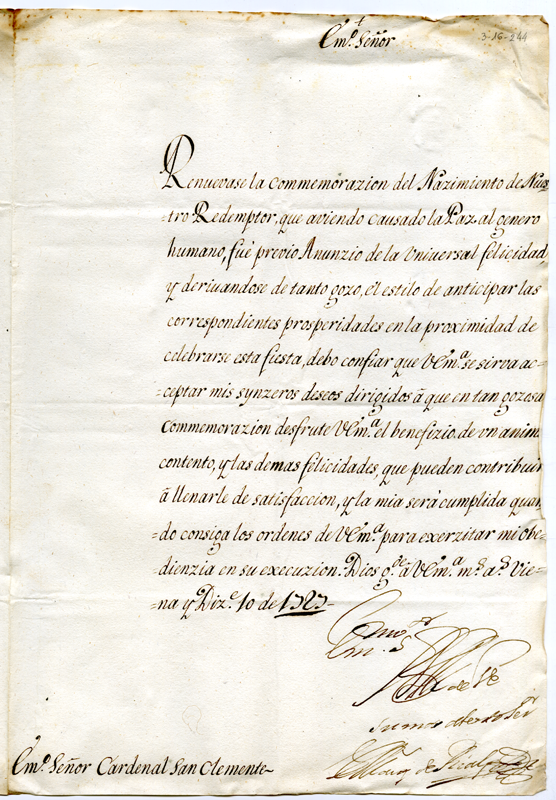 Em.º Señor
3-16-244
Renuevase la commemorazion del Nazimiento de Nues
=tro Redemptor, que aviendo causado la Paz al genero
humano, fuè previo Anunzio de la Vniversal felicidad,
y derivandose de tanto gozo, él estilo de anticipar las
correspondientes prosperidades en la proximidad de
celebrarse esta fiesta, debo confiar que VEm.ª se sirva ac=
=ceptar mis synzeros deseos dirigidos â que en tan gozosa
commemorazion desfrute VEm.ª el benefizio de vn animo
contento, y las demas felicidades, que pueden contribuir
â llenarle de satisfaccion, y la mia serà cumplida quan
=do consiga los ordenes de VEm.ª para exerzitar mi obe=
=dienzia en su execuzion. Dios g.de â VEm.ª m.s a.s Vie=
=na y Diz.e 10 de 1727
Em.º S.r
de VE
El Marq de
Em.º Señor Cardenal San Clemente